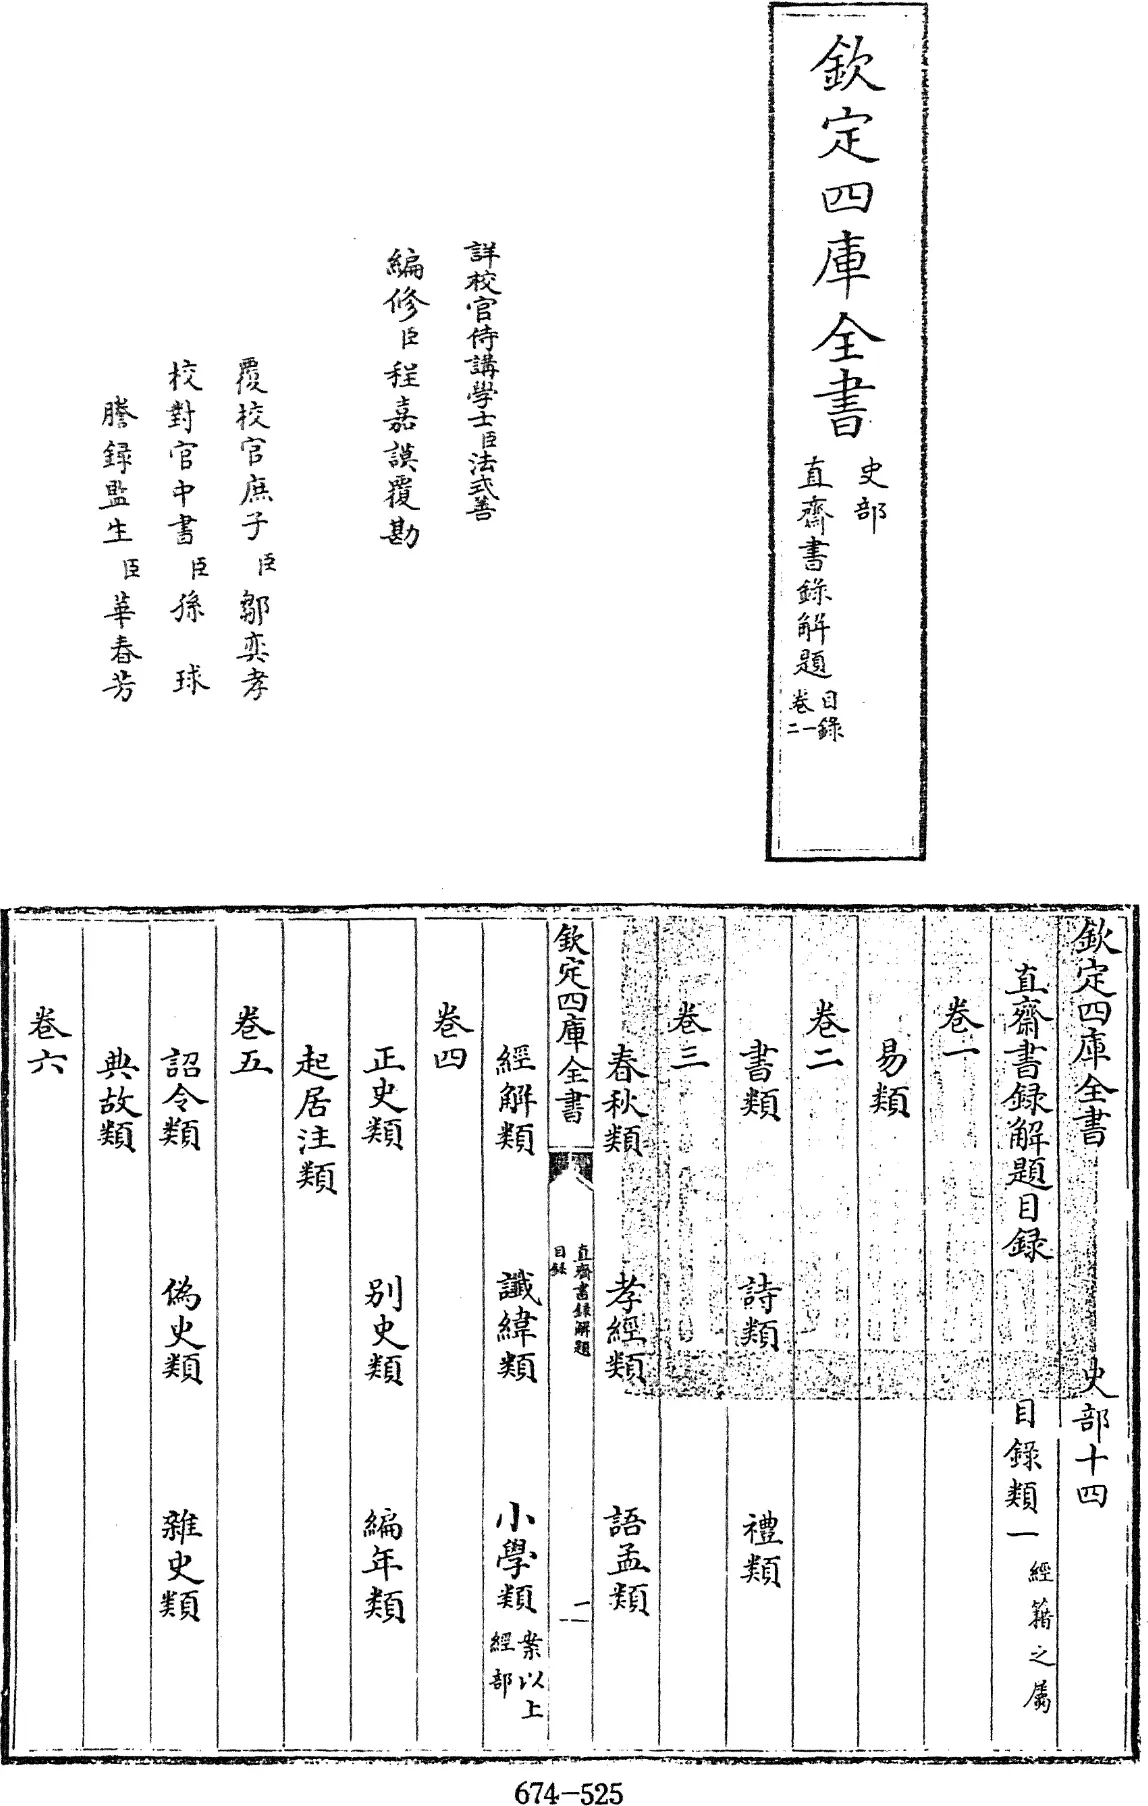 欽定四庫全書
史部
直齋書錄解題
目錄
卷一
二
詳校官侍講學士臣法式善
編修臣程嘉謨覆勘
覆校官庶子臣鄒奕孝
校對官中書臣孫球
謄錄監生臣華春芳
欽定四庫全書 史部十四
直齋書録解題目録 目錄類一 經籍之屬
卷一
易類
卷二
書類 詩類 禮類
卷三
春秋類 孝經類 語孟類
欽定四庫全書 直齋書錄解題 目錄 一
經解類 讖緯類 小學類 案以上經部
卷四
正史類 别史類 編年類
起居注類
卷五
詔令類 偽史類 雜史類
典故類
卷六
674-525